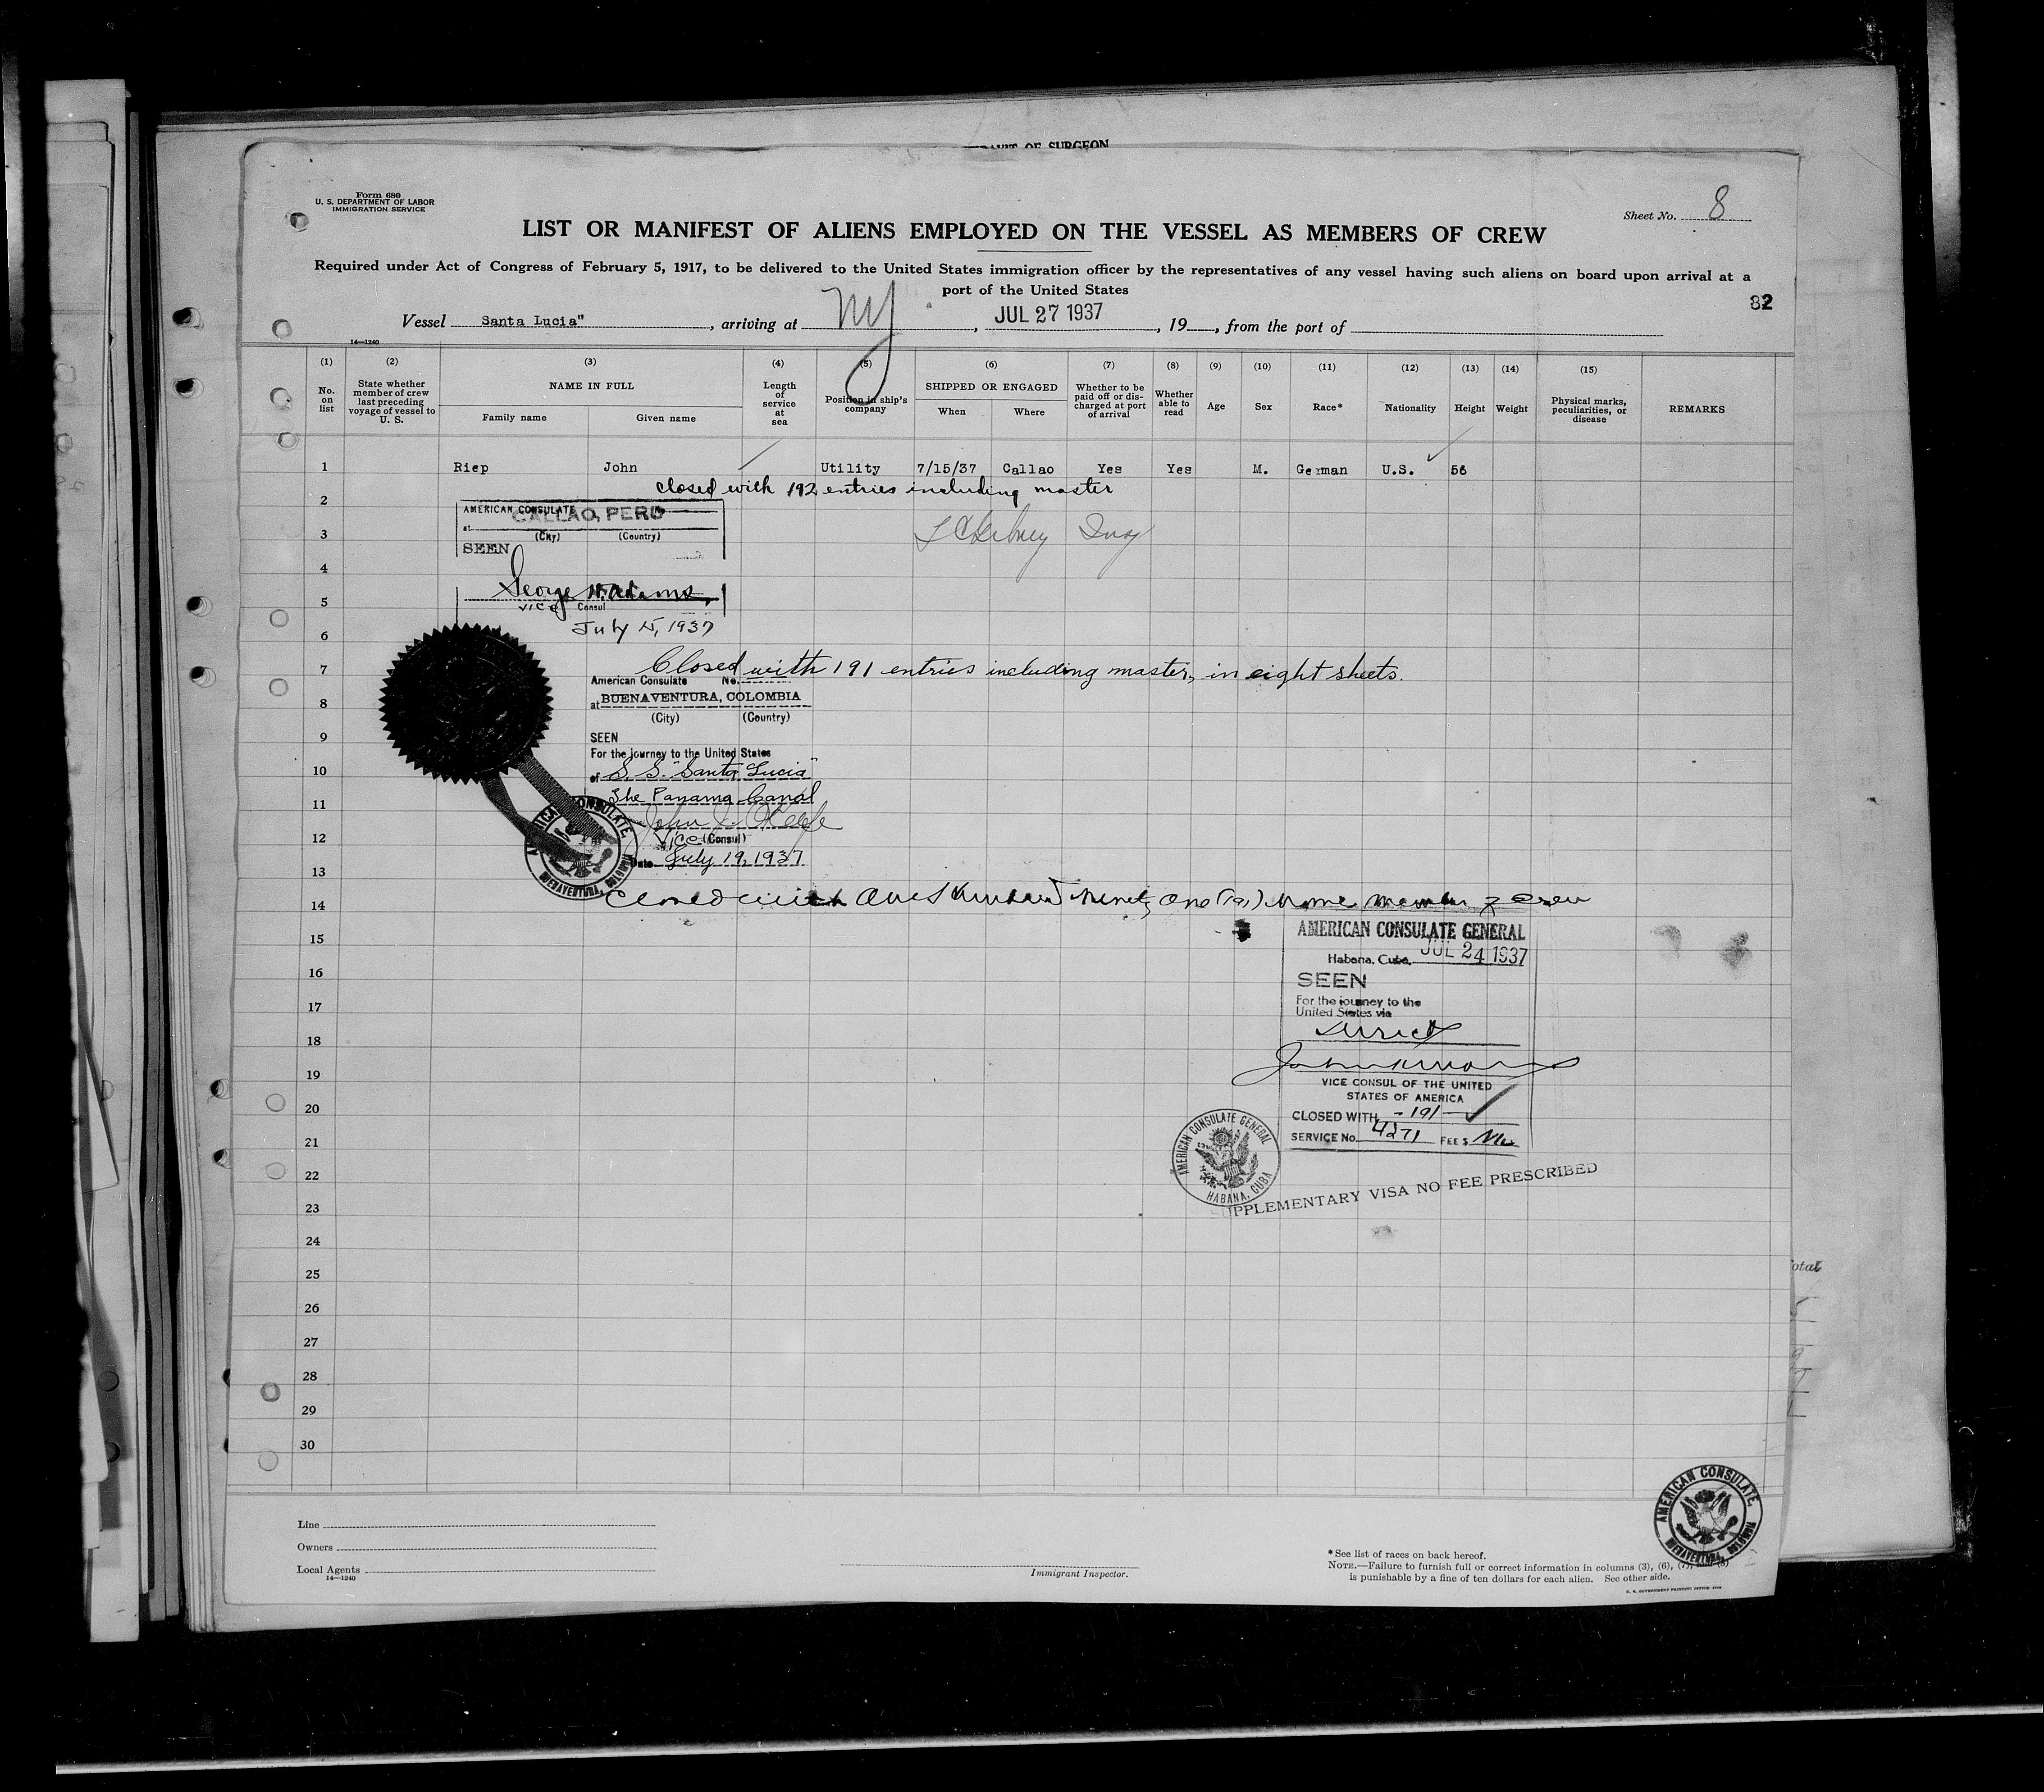 AVIT OF SURGEON
Form 680
U. S. DEPARTMENT OF LABOR
IMMIGRATION SERVICE
Sheet No. 8
LIST OR MANIFEST OF ALIENS EMPLOYED ON THE VESSEL AS MEMBERS OF CREW
Required under Act of Congress of February 5, 1917, to be delivered to the United States immigration officer by the representatives of any vessel having such aliens on board upon arrival at a
port of the United States
32
Vessel Santa Lucia", arriving at NY, JUL 27 1937, 19, from the port of
14—1240
(1) (2) (3) (4) (5) (6) (7) (8) (9) (10) (11) (12) (13) (14) (15)
No. on list
State whether member of crew last preceding voyage of vessel to U. S.
NAME IN FULL
Family name Given name
Length of service at sea
Position in ship's company
SHIPPED OR ENGAGED
When Where
Whether to be paid off or discharged at port of arrival
Whether able to read
Age
Sex
Race*
Nationality
Height
Weight
Physical marks, peculiarities, or disease
REMARKS
1 Riep John Utility 7/15/37 Callao Yes Yes M. German U.S. 56
closed with 192 entries including master
2
AMERICAN CONSULATE
at CALLAO, PERU
3
(City) (Country)
SEEN
4
George W. Adams,
5
Vice Consul
July 15, 1937
6
7
Closed with 191 entries including master, in eight sheets.
American Consulate No.
at BUENAVENTURA, COLOMBIA
8
(City) (Country)
9
SEEN
For the journey to the United States
10
of S. S. "Santa Lucia"
The Panama Canal
11
12
Vice (Consul)
Date July 19, 1937
AMERICAN CONSULATE
BUENAVENTURA, COLOMBIA
13
Closed with One Hundred Ninety One (191) Name member of crew
14
AMERICAN CONSULATE GENERAL
15
Habana, Cuba, JUL 24 1937
16
SEEN
17
For the journey to the
United States via
Direct
18
19
VICE CONSUL OF THE UNITED
STATES OF AMERICA
20
CLOSED WITH -191-
21
SERVICE No. 4271 FEE $
AMERICAN CONSULATE GENERAL
HABANA, CUBA
22
SUPPLEMENTARY VISA NO FEE PRESCRIBED
23
24
25
26
27
28
29
30
AMERICAN CONSULATE
BUENAVENTURA, COLOMBIA
Line
Owners
Local Agents
14—1240
Immigrant Inspector.
*See list of races on back hereof.
NOTE.—Failure to furnish full or correct information in columns (3), (6), (7), and (8)
is punishable by a fine of ten dollars for each alien. See other side.
otal